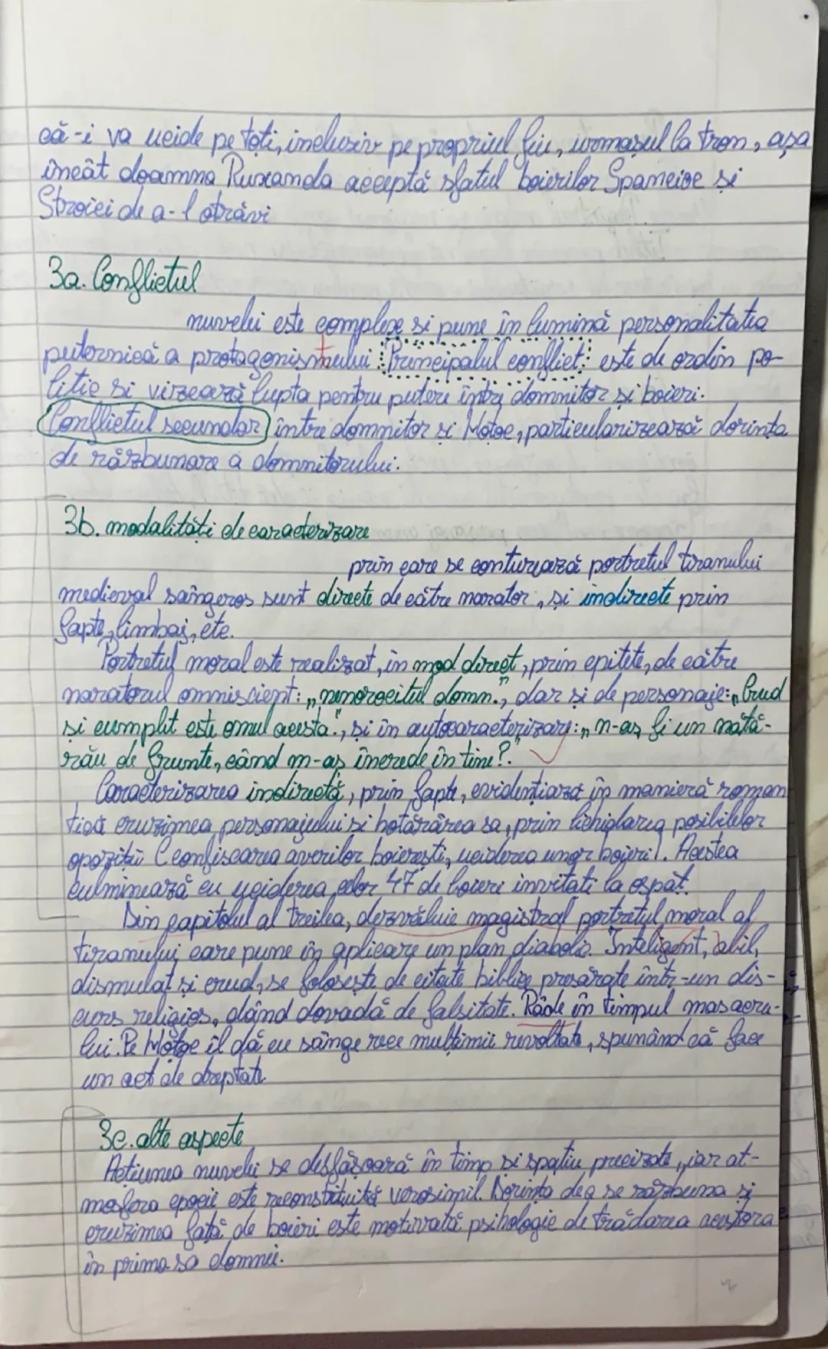 că-i va ucide pe toți, inclusiv pe propriul fiu, urmașul la tron, așa
încât doamna Ruxanda acceptă sfatul boierilor Spancioc și
Stroici de a-l otrăvi
3a. Conflictul
nuvelei este complex și pune în lumină personalitatea
puternică a protagonistului. Principalul conflict: este de ordin po-
litic și vizează lupta pentru putere între domnitor și boieri.
Conflictul secundar între domnitor și Moțoc, particularizează dorința
de răzbunare a domnitorului.
3b. modalități de caracterizare
prin care se conturează portretul tiranului
medieval sângeros sunt directe de către narator, și indirecte prin
fapte, limbaj, etc.
Portretul moral este realizat, în mod direct, prin epitete, de către
naratorul omniscient: „nenorocitul domn.”, dar și de personaje: „Crud
și cumplit este omul acesta”, și în autocaracterizare: „n-aș fi un nătă-
rău de frunte, când m-aș încrede în tine?”
Caracterizarea indirectă, prin fapte, evidențiază în manieră roman
tică cruzimea personajului și hotărârea sa, prin lichidarea posibilelor
opoziții (confiscarea averilor boierești, uciderea unor boieri). Acestea
culminează cu uciderea celor 47 de boieri invitați la ospăț.
Din capitolul al treilea, dezvăluie magistral portretul moral al
tiranului care pune în aplicare un plan diabolic. Inteligent, abil,
disimulat și crud, se folosește de citate biblice presărate într-un dis-
curs religios, dând dovadă de falsitate. Râde în timpul masacru-
lui. Pe Moțoc îl dă cu sânge rece mulțimii revoltate, spunând că face
un act de dreptate.
3c. alte aspecte
Acțiunea nuvelei se desfășoară în timp și spațiu precizate, iar at-
mosfera epocii este reconstituită verosimil. Dorința de a se răzbuna și
cruzimea față de boieri este motivată psihologic de trădarea acestora
în prima sa domnie.